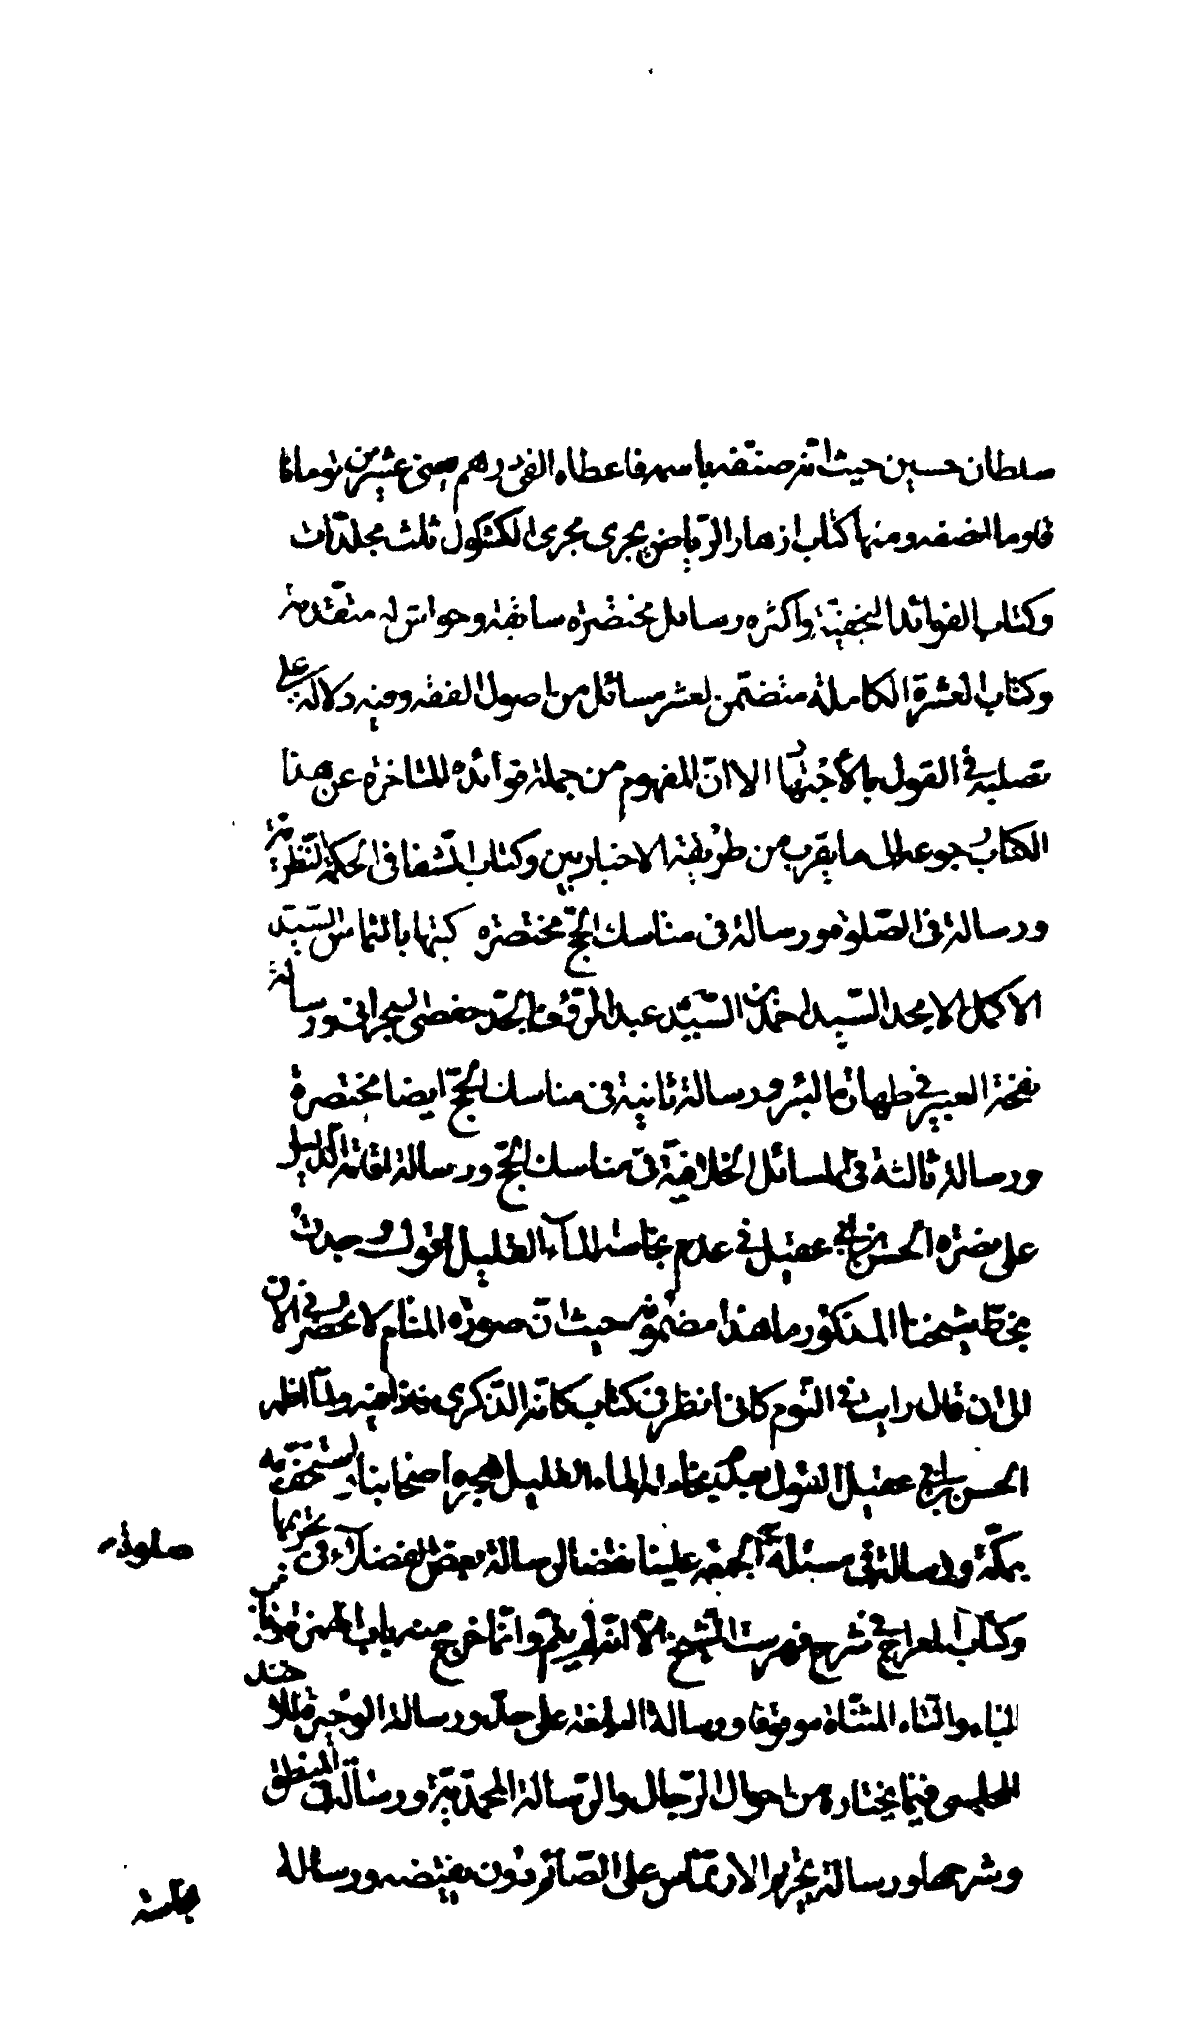 سلطان حسين حيث انه صنفه باسمه فاعطاه الفى درهم يعنى عشرين تومانا
فاوما انصفه ومنها كتاب ازهار الرياض يجرى مجرى الكشكول ثلث مجلدات
وكتاب الفوائد النجفية واكثره رسائل مختصره سابقة وحواش له متقدمة
وكتاب العشرة الكاملة متضمن لعشر مسائل من اصول الفقه وفيه دلالة على
تصلبه فى القول بالاجتهاد الا ان المفهوم من جملة فوائده المتاخرة عن هذا
الكتاب رجوعه الى ما يقرب من طريقة الاخباريين وكتاب الشفا فى الحكمة النظرية
ورسالة فى الصلوة ورسالة فى مناسك الحج مختصره كتبها بالتماس السيد
الاكمل الامجد السيد احمد بن السيد عبد الرؤف الجد حفصى البحرانى ورسالة
نفحة العبير فى طهارة البئر ورسالة ثانية فى مناسك الحج ايضا مختصرة
ورسالة ثالثة فى المسائل الخلافية فى مناسك الحج ورسالة اقامة الدليل
على نصرة الحسن بن ابى عقيل فى عدم نجاسة الماء القليل اقول ووجدت
بخط شيخنا المذكور ما هذا مضمونه حيث ان صورة المنام لا يحضرنى الان
الى ان قال رايت فى النوم كانى انظر فى كتاب كانه الذكرى وفيه ولما اظهر
الحسن بن ابى عقيل القول بعدم نجاسة الماء القليل هجره اصحابنا
بمكة ورسالة فى مسئلة الجمعة علينا نقضا لرسالة بعض الفضلاء فى تحريمها
وكتاب المعراج فى شرح فهرست الشيخ الا انه لم يتم وانما خرج منه باب الهمزة
الباء والتاء المثناة من فوق ورسالة البلغة على حذو رسالة الوجيزة للا خند
المجلسى فيما يختاره من احوال الرجال والرسالة المحمدية ورسالة فى المنطق
وشرحها ورسالة تحريم الارتماس على الصائم دون نقيضه ورسالة
صلوة